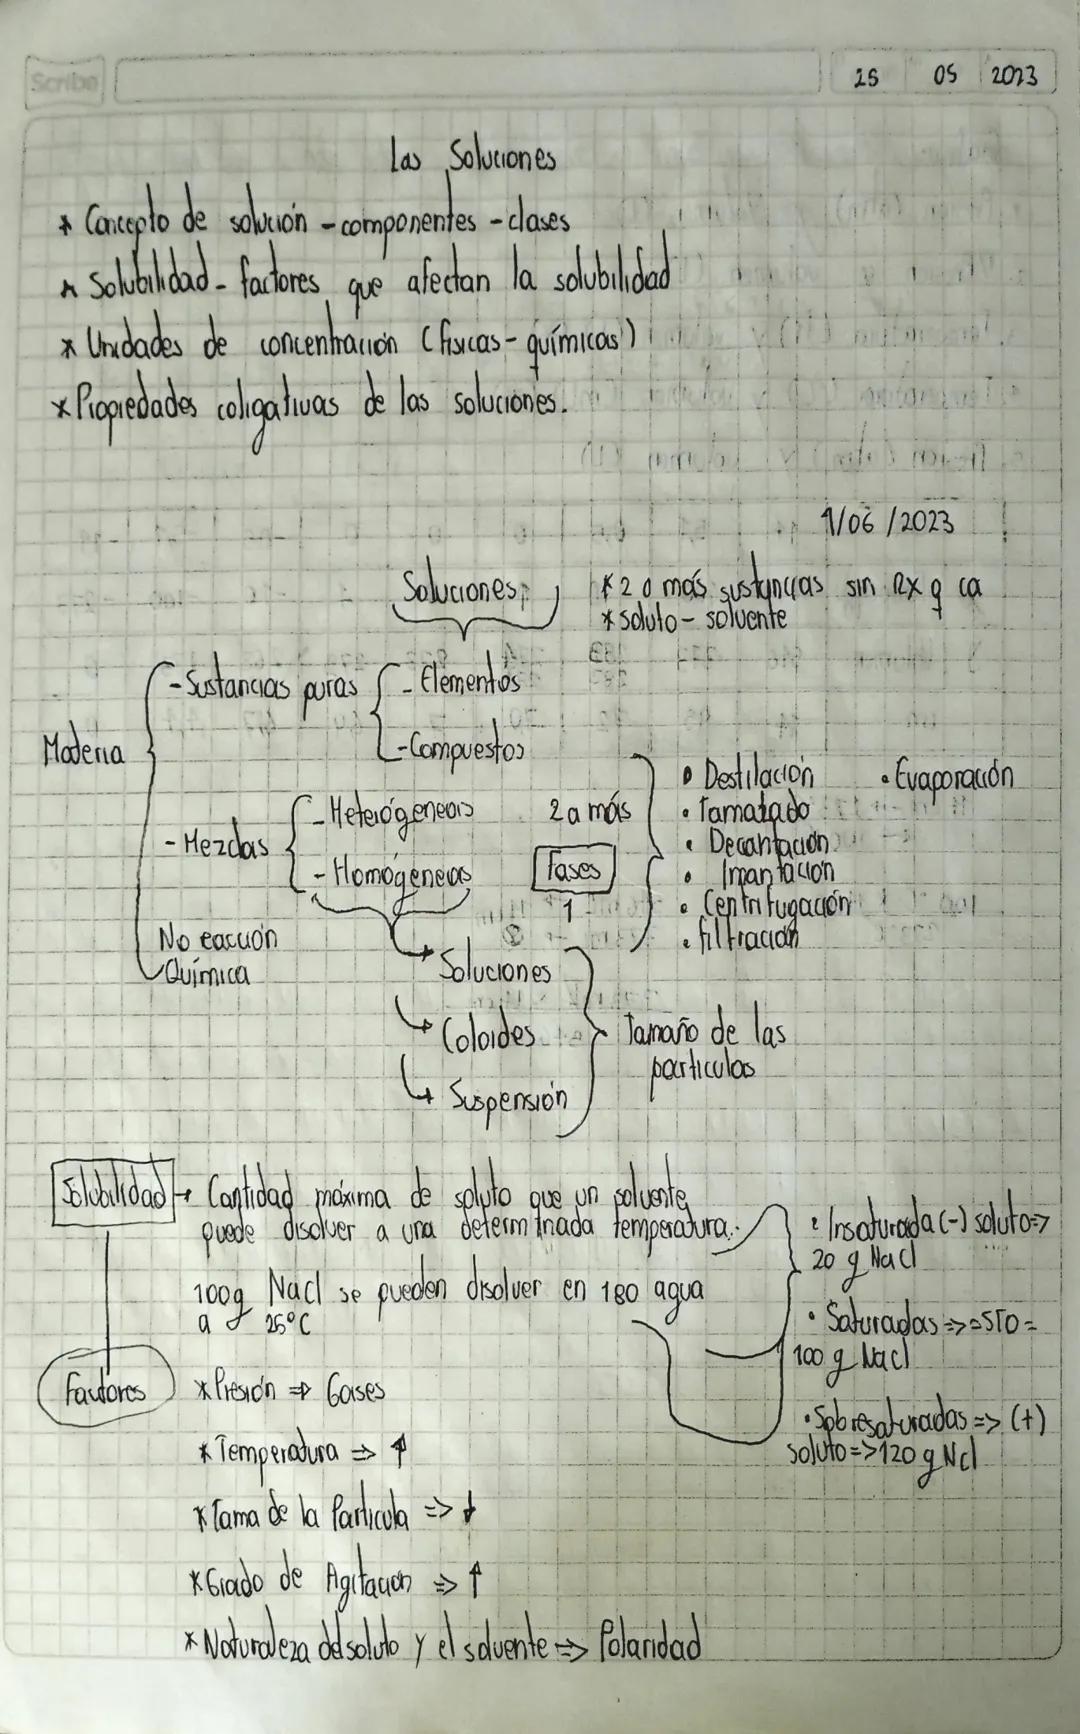 Scribe
25 05 2023
Las Soluciones
* Concepto de solución - componentes - clases
* Solubilidad - factores que afectan la solubilidad
* Unidades de concentración (físicas - químicas)
* Propiedades coligativas de las soluciones.
1/06/2023
Soluciones
* 2 o más sustancias sin RX q ca
* soluto - solvente
Materia
- Sustancias puras
- Elementos
- Compuestos
- Mezclas
- Heterógeneas
- Homógeneas
2 a más
Fases
1
• Destilación
• Evaporación
• Tamatado
• Decantación
• Imantación
• Centrifugación
• filtración
No eacción
Química
Soluciones
Coloides
Suspensión
Tamaño de las
particulas
Solubilidad → Cantidad máxima de soluto que un solvente
puede disolver a una determinada temperatura.
100g Nacl se pueden disolver en 180 agua
a 25°C
• Insaturada (-) soluto =>
20 g Nacl
• Saturadas => = STO =
100 g Nacl
• Sobresaturadas => (+)
soluto => 120 g Ncl
Factores
* Presión => Gases
* Temperatura => ↑
* Tama de la Particula => ↓
* Grado de Agitación => ↑
* Naturaleza del soluto y el solvente => Polaridad